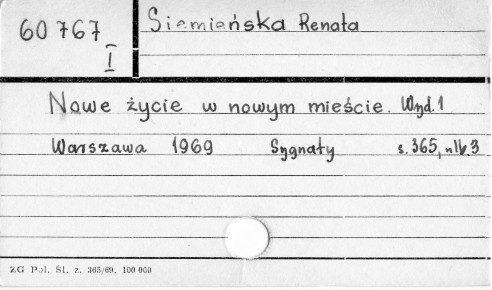 60 767
I
Siemieńska Renata
Nowe życie w nowym mieście. Wyd. 1
Warszawa 1969 Sygnały s. 365, nlb. 3
ZG Pol. Śl. z. 365/69. 100 000